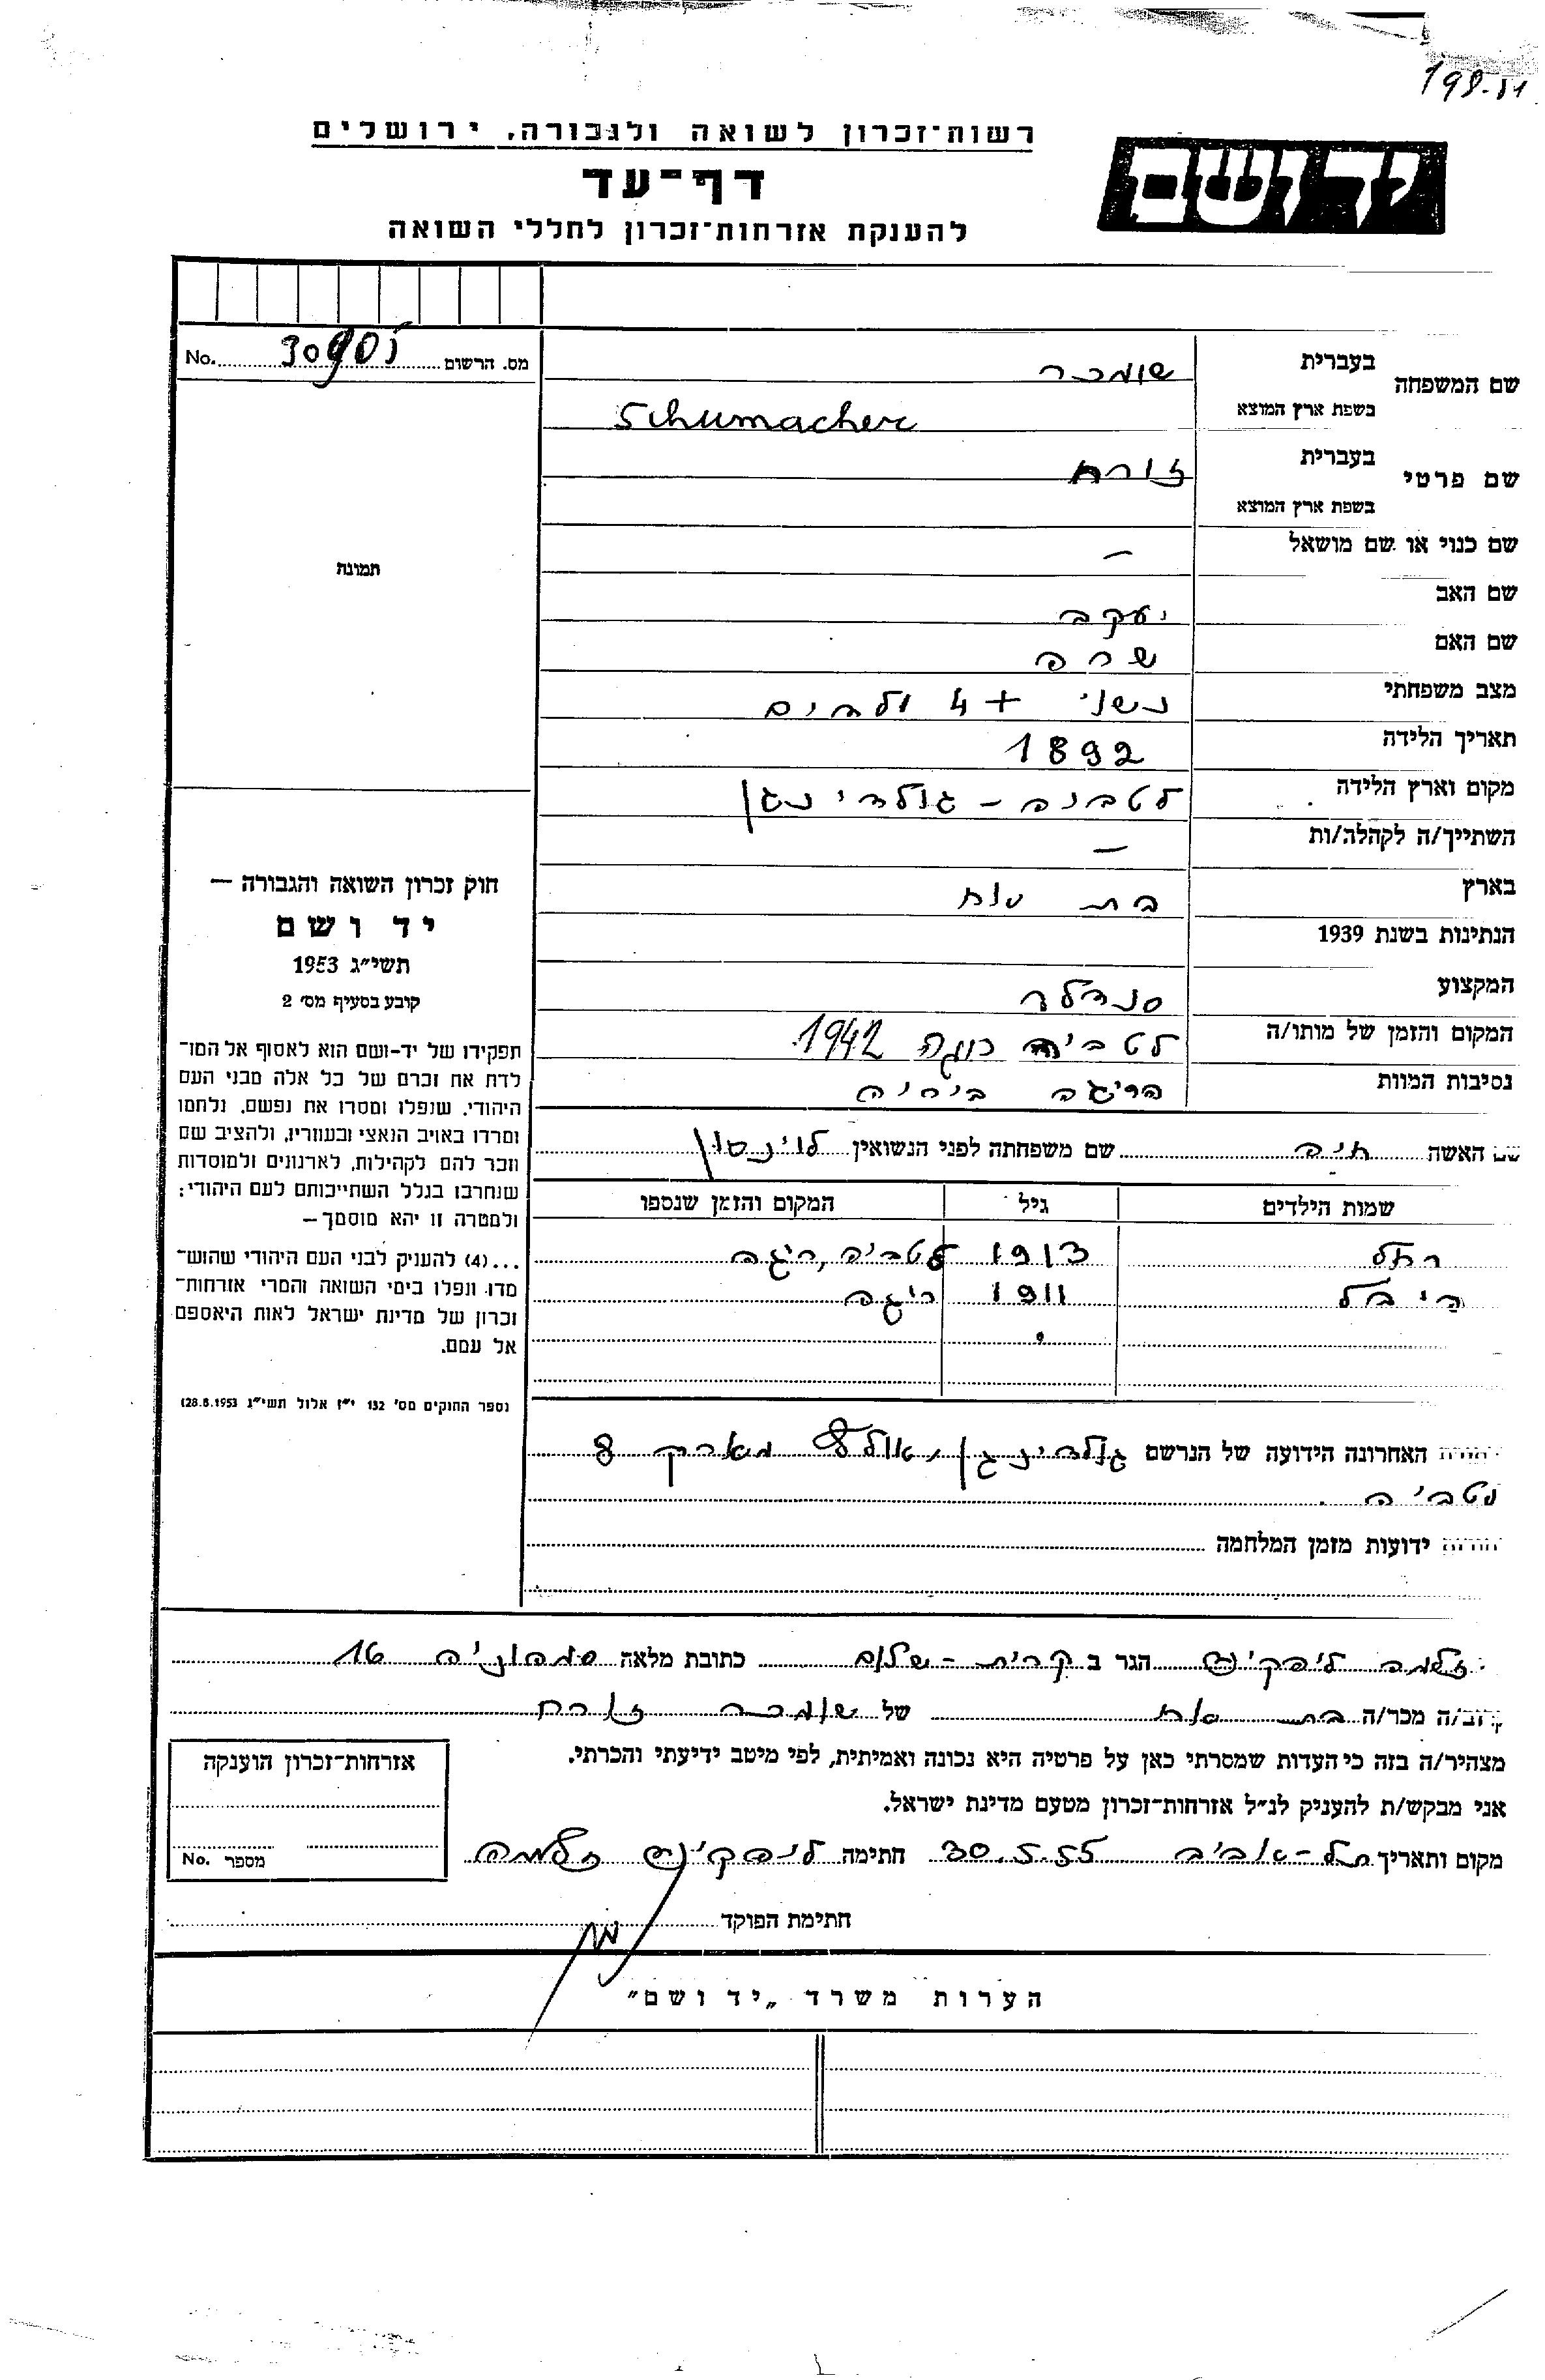 198-51
רשות־זכרון לשואה ולגבורה, ירושלים
יד ושם
דף־עד
להענקת אזרחות־זכרון לחללי השואה
No. 30905 מס. הרשום
שם המשפחה בעברית שומכר
בשפת ארץ המוצא Schumacher
שם פרטי בעברית זורח
בשפת ארץ המוצא
שם כנוי או שם מושאל –
תמונה
שם האב יעקב
שם האם שרה
מצב משפחתי נשוי + 4 ילדים
תאריך הלידה 1892
מקום וארץ הלידה לטביה - גולדינגן
השתייך/ה לקהלה/ות –
בארץ
הנתינות בשנת 1939
המקצוע סנדלר
המקום והזמן של מותו/ה לטביה 1942
נסיבות המוות הריגה
שם האשה חיה שם משפחתה לפני הנשואין לוינסון
שמות הילדים גיל המקום והזמן שנספו
רחל 1913 לטביה, ריגה
1911 ריגה
חוק זכרון השואה והגבורה —
יד ושם
תשי״ג 1953
קובע בסעיף מס׳ 2
תפקידו של יד-ושם הוא לאסוף אל המו־
לדת את זכרם של כל אלה מבני העם
היהודי, שנפלו ומסרו את נפשם, נלחמו
ומרדו באויב הנאצי ובעוזריו, ולהציב שם
וזכר להם לקהילות, לארגונים ולמוסדות
שנחרבו בגלל השתייכותם לעם היהודי;
ולמטרה זו יהא מוסמך—
...(4) להעניק לבני העם היהודי שהוש־
מדו ונפלו בימי השואה והמרי אזרחות־
זכרון של מדינת ישראל לאות היאספם
אל עמם.
(ספר החוקים מס׳ 132 י״ז אלול תשי״ג 28.8.1953)
האחרונה הידועה של הנרשם גולדינגן, 8
לטביה
ידועות מזמן המלחמה
זלמה ליפקינס הגר ב קרית-שלום כתובת מלאה 16
קרוב/ה מכר/ה של שומכר זורח
מצהיר/ה בזה כי העדות שמסרתי כאן על פרטיה היא נכונה ואמיתית, לפי מיטב ידיעתי והכרתי.
אני מבקש/ת להעניק לנ״ל אזרחות־זכרון מטעם מדינת ישראל.
מקום ותאריך תל-אביב 30.5.55 חתימה ליפקינס זלמה
אזרחות־זכרון הוענקה
מספר No.
חתימת הפוקד
הערות משרד „יד ושם”